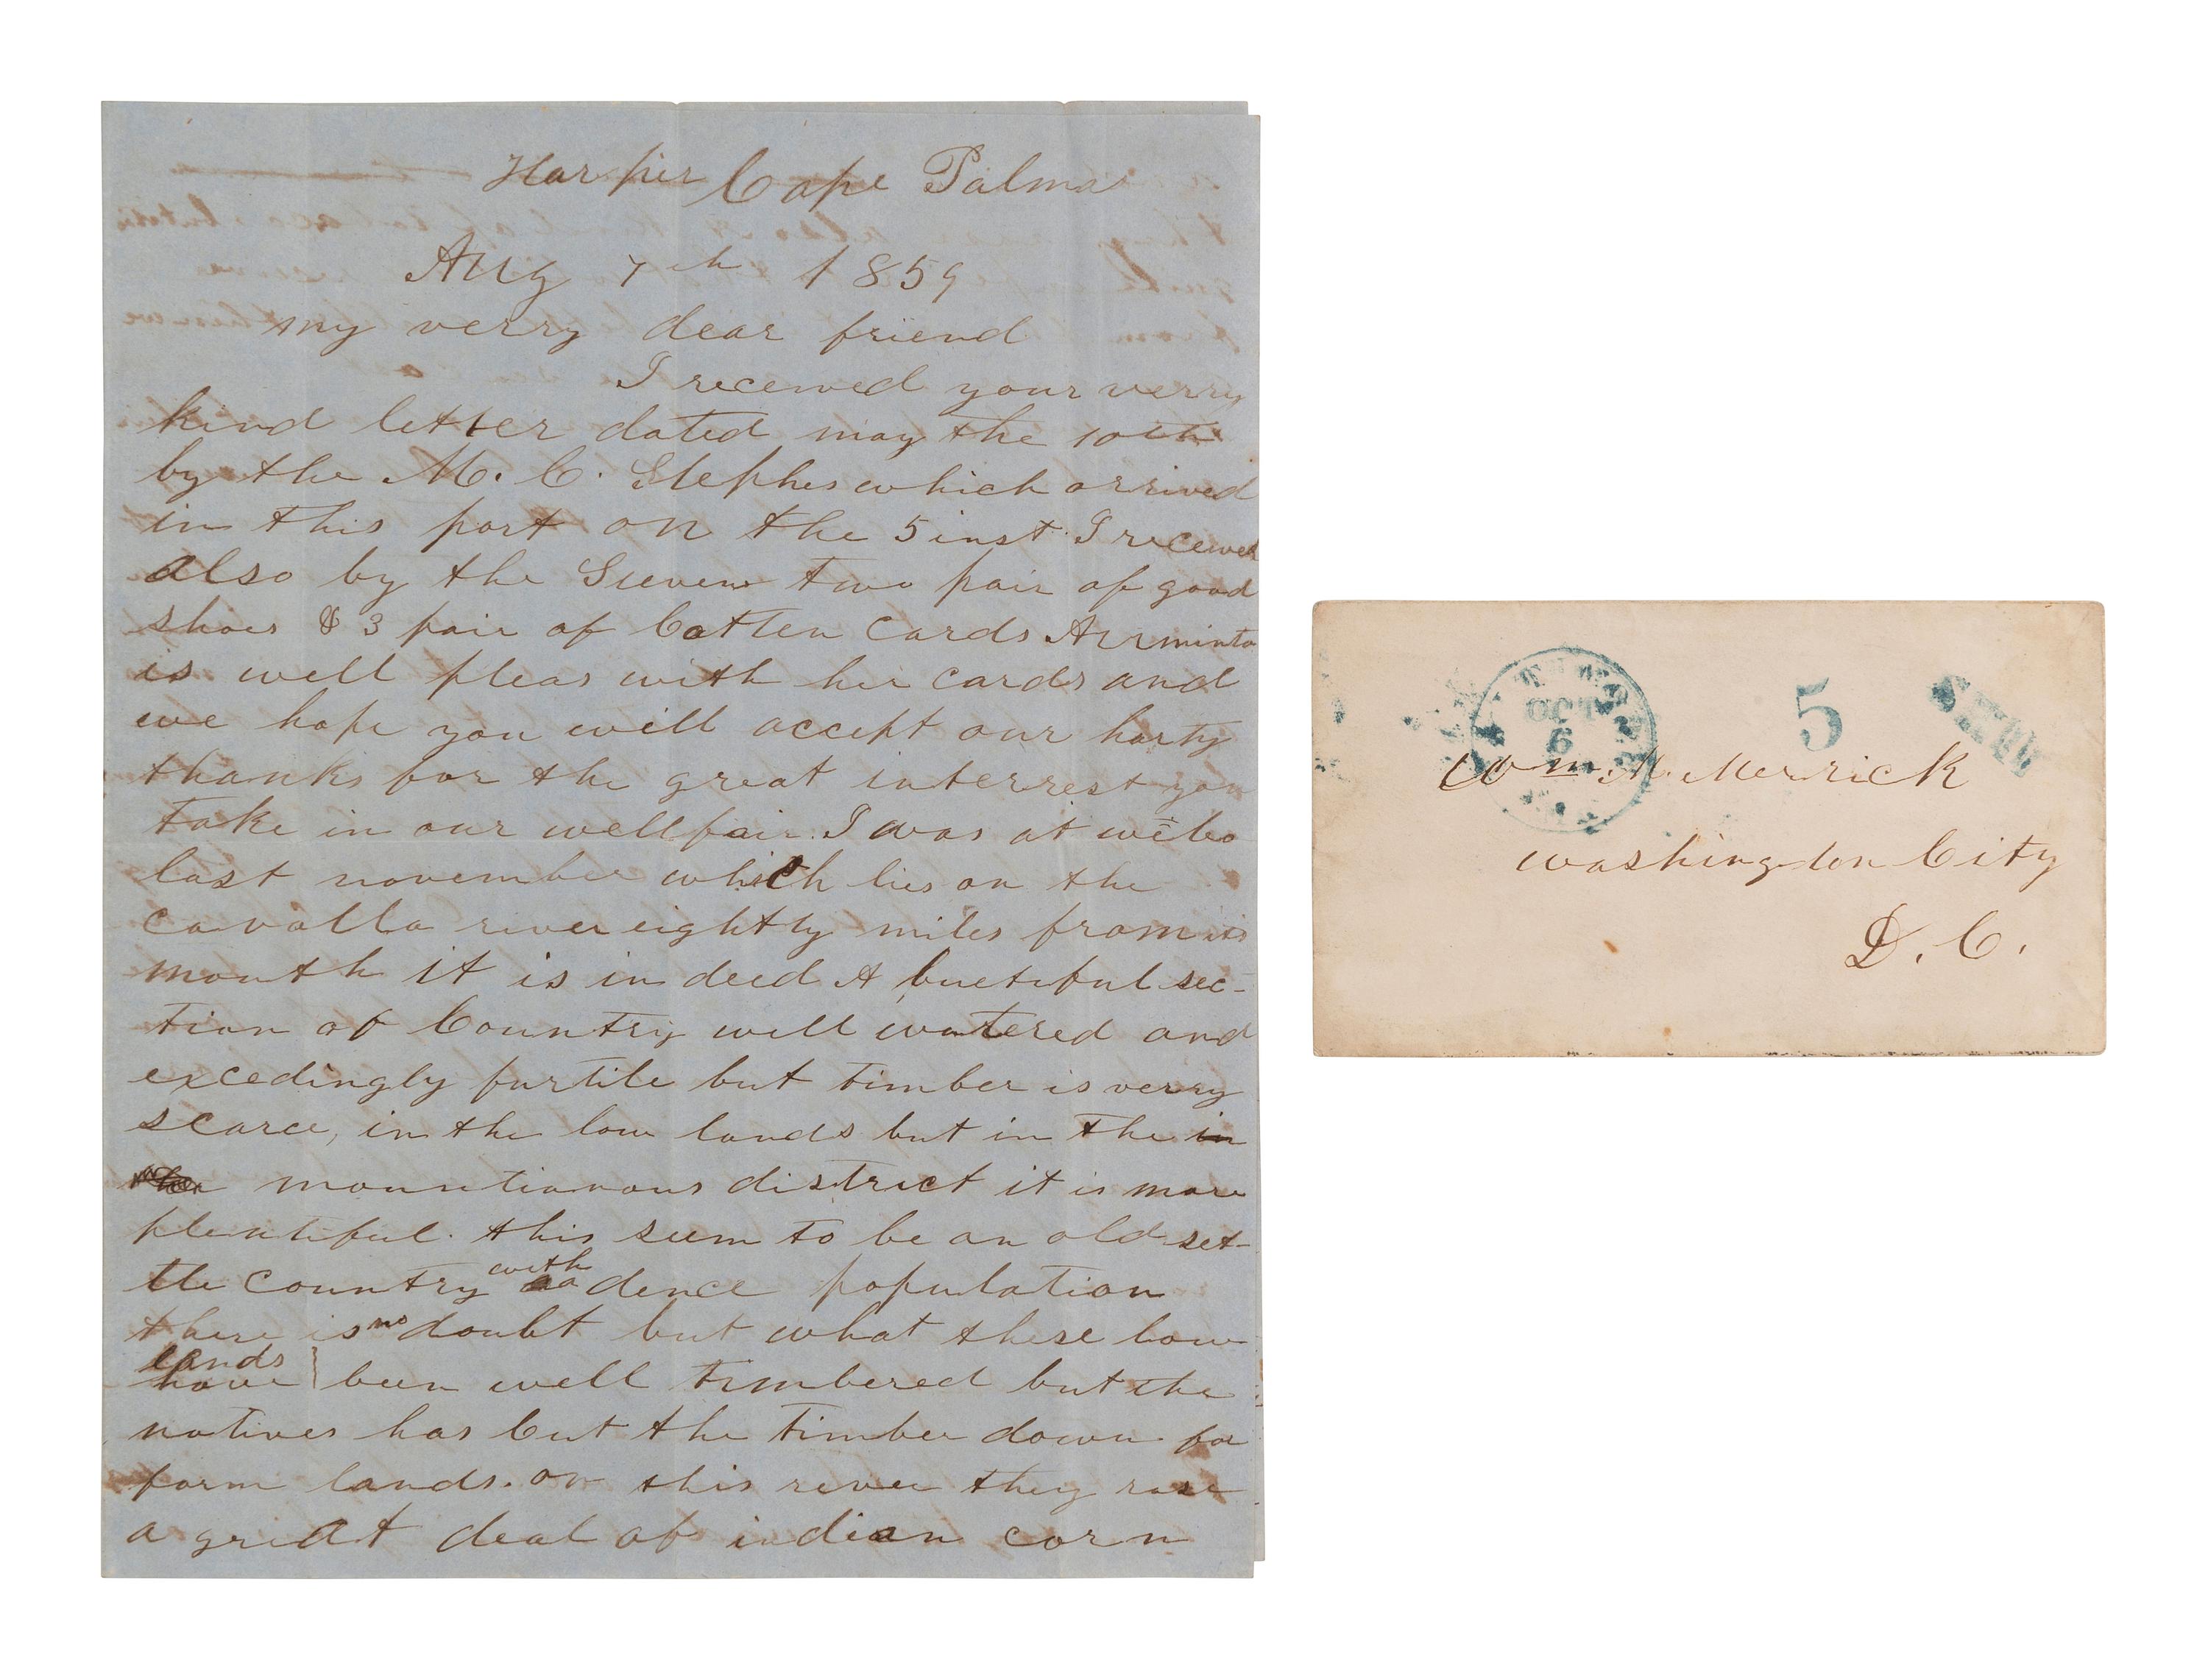 Harper Cape Palma
Aug 7th 1859
my verry dear friend
I received your verry
kind letter dated may the 10th
by the M. C. Stephes which arrived
in this port on the 5 inst. I received
also by the Steven two pair of good
shoes & 3 pair of Cotten Cards Arminta
is well pleas with her cards and
we hope you will accept our harty
thanks for the great interrest you
take in our wellfair. I was at webo
last november which lies on the
cavalla river eightly miles from its
mouth it is in deed A buetiful sec-
tion of Country well watered and
excedingly furtile but timber is verry
scarce, in the low lands but in the in
mountianous district it is more
plentiful. this seem to be an old set-
tle country with a dence population
there is no doubt but what these low
lands
have been well timbered but the
natives has Cut the timber down for
farm lands. on this river they rase
a great deal of indian corn
OCT
6
5
Wm. M. Merrick
washington City
D. C.